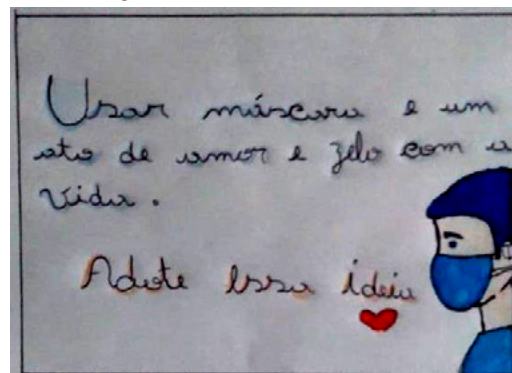 Usar máscara e um
ato de amor e zelo com a
vida.
Adote essa ideia